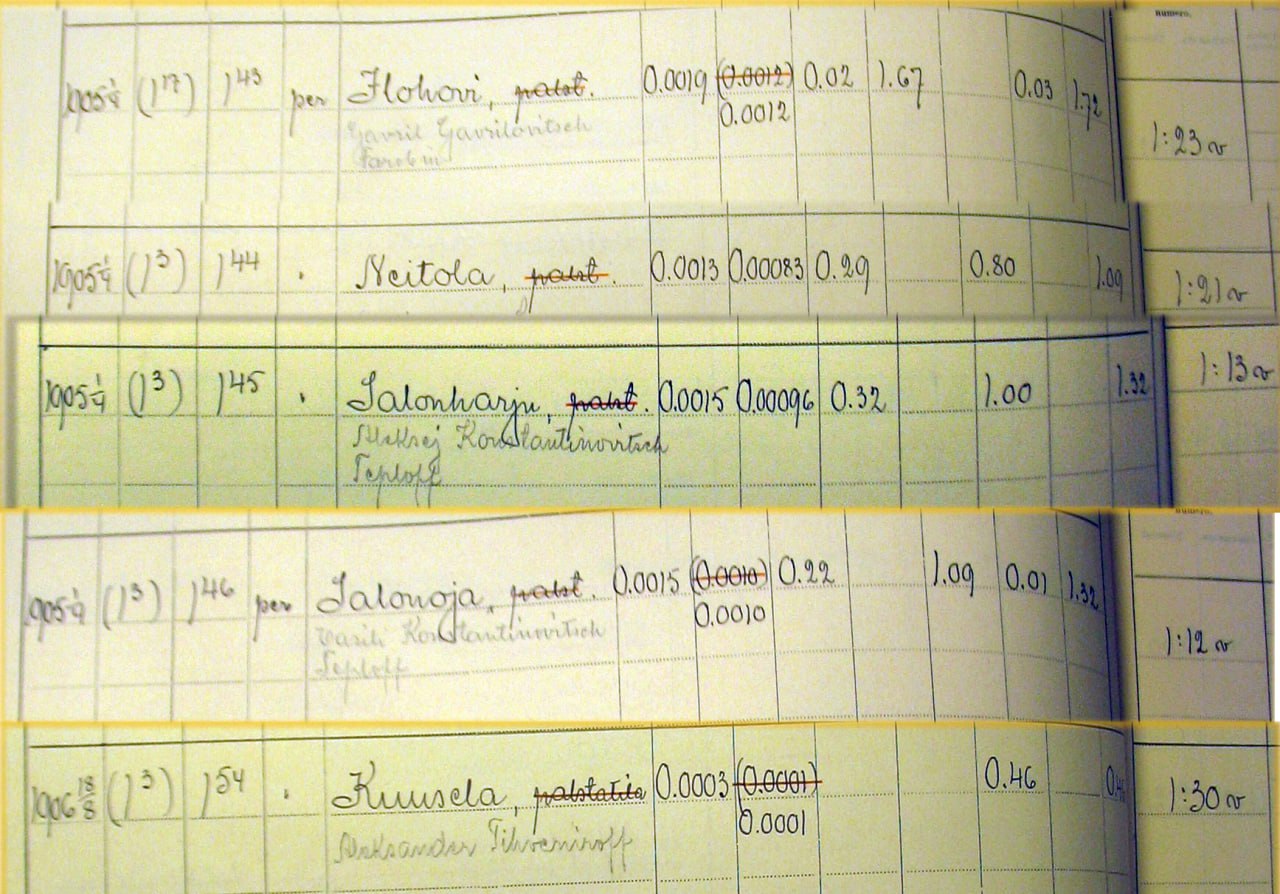 numero.
1905 1/4 (1³) 1⁴³ per Ilohovi, palst. 0.0019 (0.0012) 0.02 1.67 0.03 1.72
0.0012
1:23 v
Gavril Gavrilovitsch
1905 1/4 (1³) 1⁴⁴ Neitola, palst. 0.0013 0.00083 0.29 0.80 1.09 1:21 v
1905 1/4 (1³) 1⁴⁵ Salonharju, palst. 0.0015 0.00096 0.32 1.00 1.32 1:13 v
Aleksej Konstantinovitsch
Teploff
numero.
1905 1/4 (1³) 1⁴⁶ per Salonoja, palst. 0.0015 (0.0010) 0.22 1.09 0.01 1.32
0.0010
1:12 v
Vasili Konstantinovitsch
Teploff
1906 18/8 (1³) 1⁵⁴ Kuusela, palstatila 0.0003 (0.0001) 0.46 1:30 v
0.0001
Aleksander